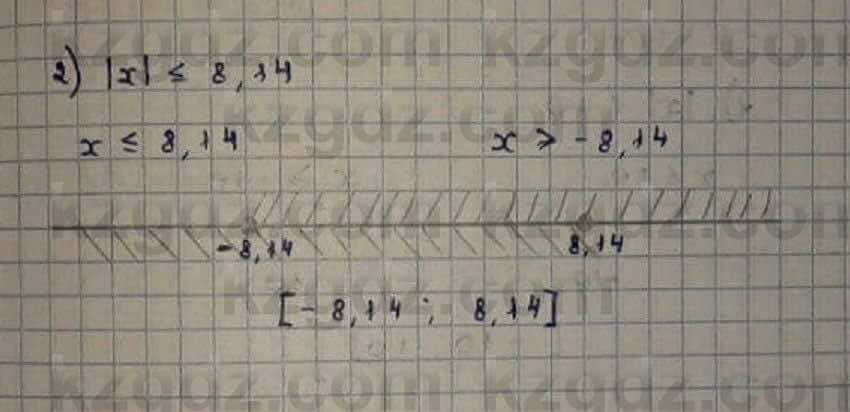 kzgdz.com kzgdz.com
2) |x| ≤ 8,14
kzgdz.com
x ≤ 8,14 x ⩾ -8,14
kzgdz.com kzgdz.com
-8,14 8,14
kzgdz.com
[-8,14 ; 8,14]
kzgdz.com kzgdz.com